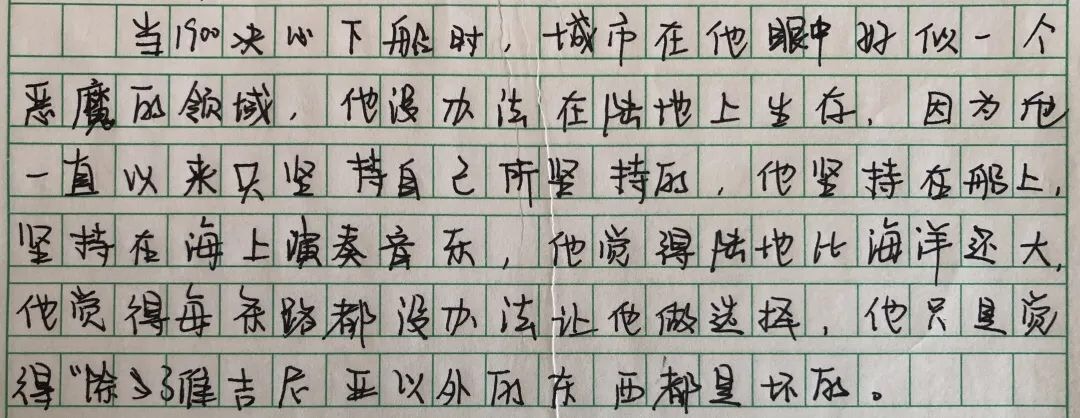 当1900决心下船时，城市在他眼中好似一个
恶魔的领域，他没办法在陆地上生存，因为他
一直以来只坚持自己所坚持的，他坚持在船上，
坚持在海上演奏音乐，他觉得陆地比海洋还大，
他觉得每条路都没办法让他做选择，他只是觉
得“除”了维吉尼亚以外的东西都是坏的。